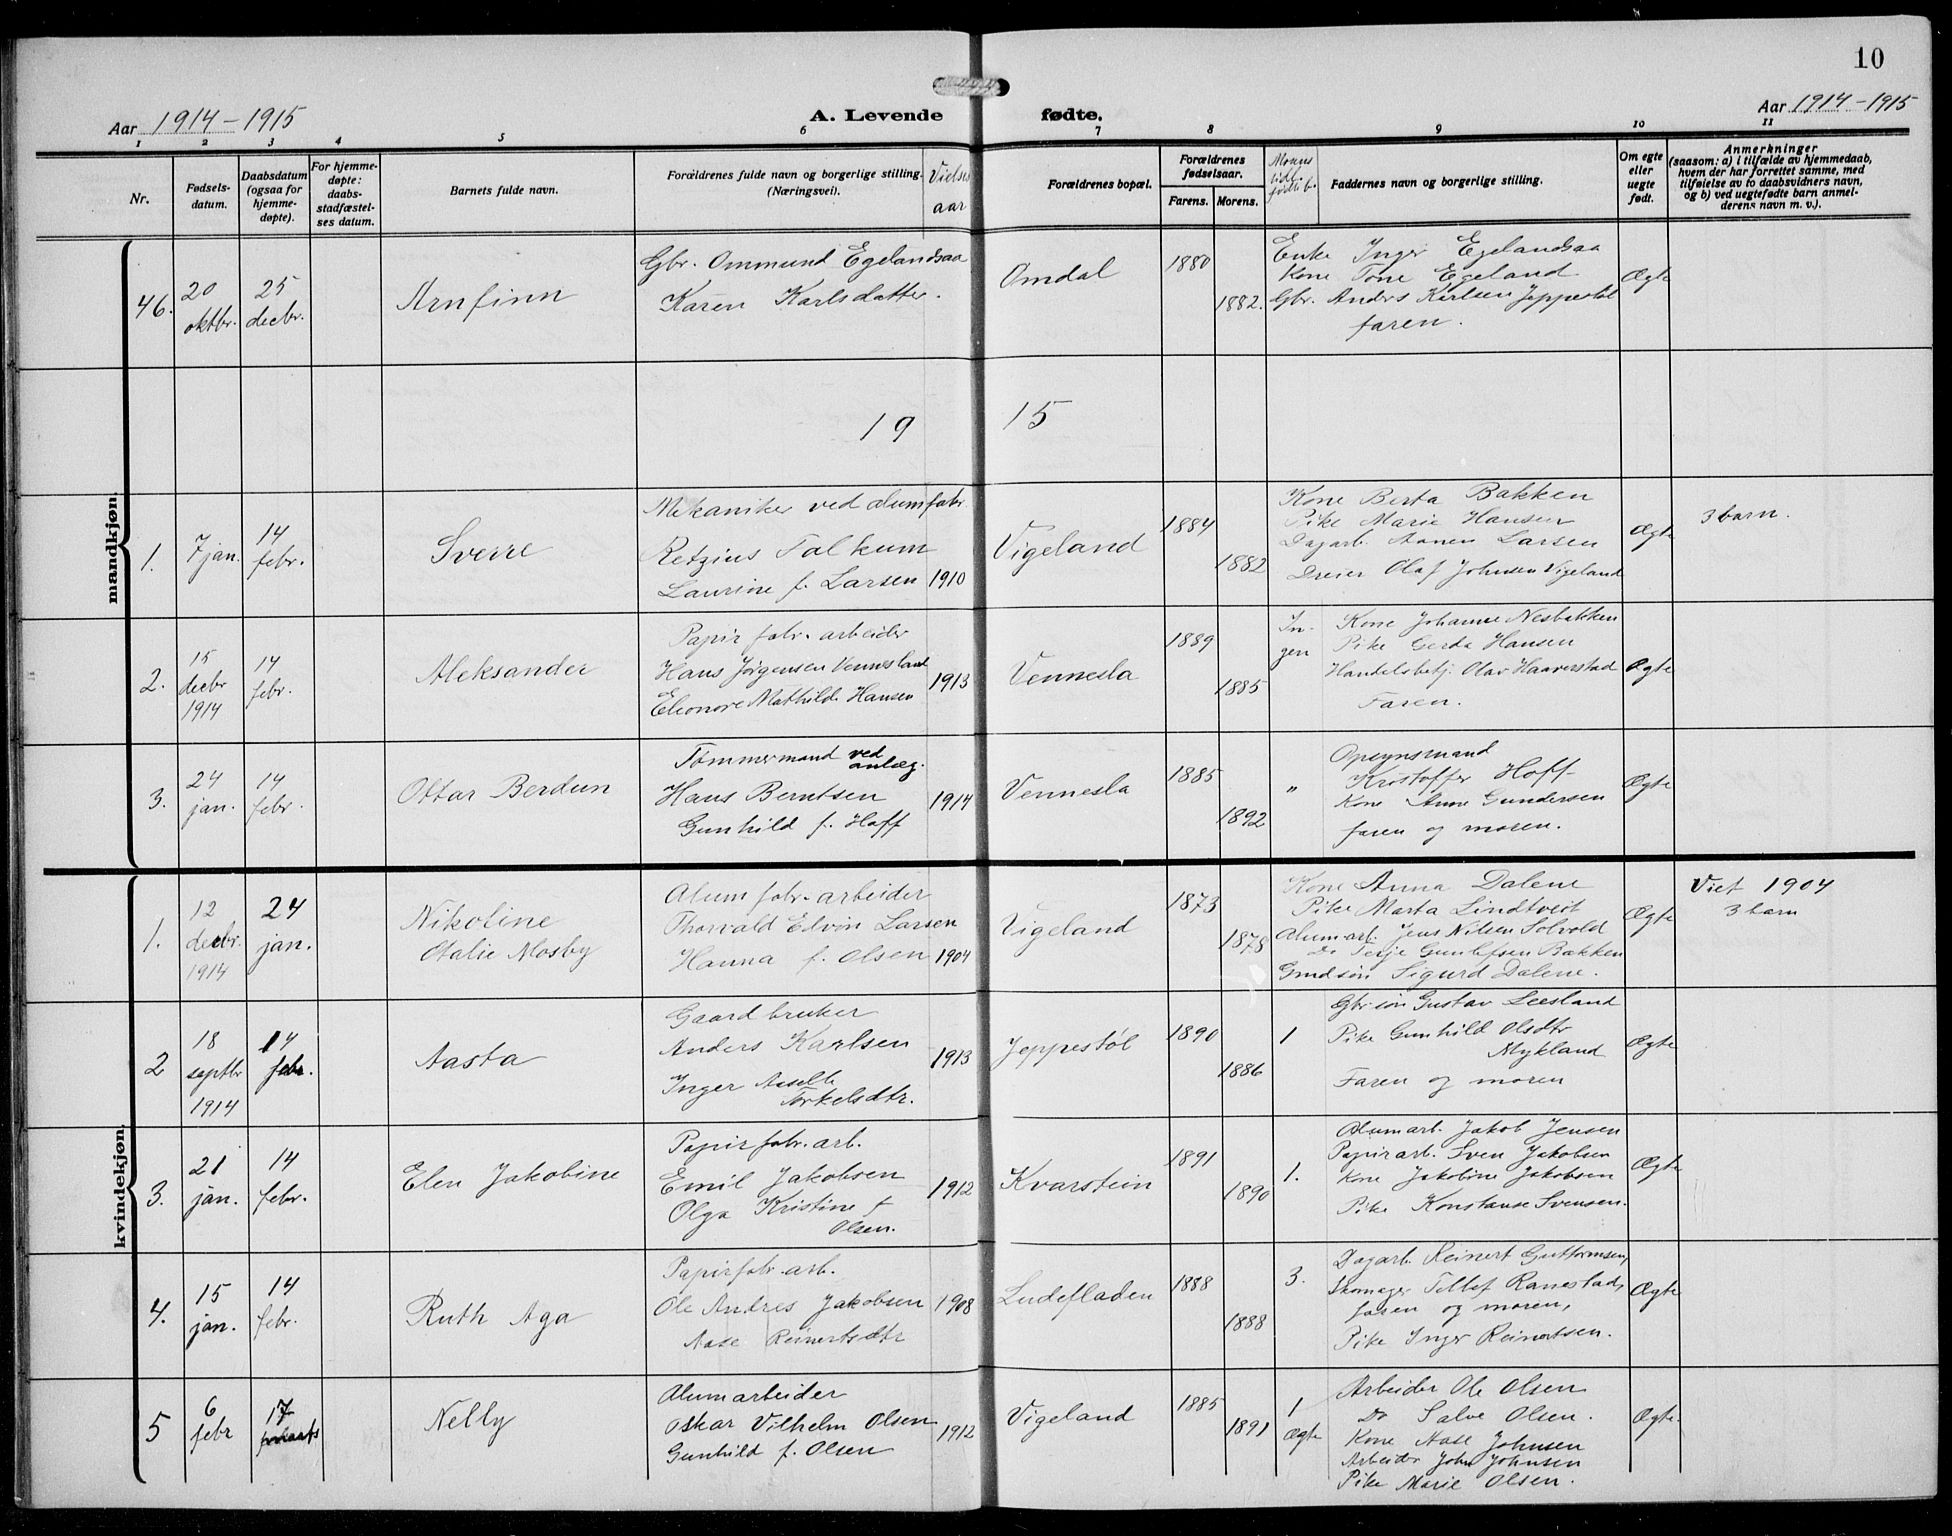 10
Aar 1914-1915
A. Levende fødte.
Aar 1914-1915
1 2 3 4 5 6 7 8 9 10 11
Nr.
Fødsels-
datum.
Daabsdatum
(ogsaa for
hjemme-
døpte).
For hjemme-
døpte:
daabs-
stadfæstel-
ses datum.
Barnets fulde navn.
Forældrenes fulde navn og borgerlige stilling.
(Næringsvei).
Vielses
aar
Forældrenes bopæl.
Forældrenes
fødselsaar.
Farens. Morens.
Morens
tidl.
fødte b.
Faddernes navn og borgerlige stilling.
Om egte
eller
uegte
født.
Anmerkninger
(saasom: a) i tilfælde av hjemmedaab,
hvem der har forrettet samme, med
tilføielse av to daabsvidners navn,
og b) ved uegtefødte barn anmel-
derens navn m. v.).
mandkjøn.
46.
20
oktbr.
25
decbr.
Arnfinn
Gbr. Ommund Egelandsaa
Karen Karlsdatter.
Omdal
1880
1882.
Enke Inger Egelandsaa
Kone Tone Egeland
Gbr. Anders Karlsen Jeppestøl
faren.
Ægte
19 15
1.
7 jan.
14
febr.
Sverre
Mekaniker ved alumfabr.
Retzius Talkum
Laurine f. Larsen
1910
Vigeland
1884
1882
Kone Berta Bakken
Pike Marie Hansen
Dagarb. Aanen Larsen
Dreier Olaf Johnsen Vigeland
Ægte
3 barn.
2.
15
decbr
1914
14
febr.
Aleksander
Papirfabr. arbeider
Hans Jørgensen Vennesland
Eleonore Mathilde Hansen
1913
Vennesla
1889
1885
In-
gen
Kone Johanne Nesbakken
Pike Gerda Hansen
Handelsbetj. Olav Haaverstad
Faren.
Ægte
3.
24
jan.
14
febr.
Ottar Berdun
Tømmermand ved
anlæg.
Hans Berntsen
Gunhild f. Hoff
1914
Vennesla
1885
1892
"
Opsynsmand
Kristoffer Hoff
Kone Anne Gundersen
faren og moren.
Ægte
kvindekjøn.
1.
12
decbr.
1914
24
jan.
Nikoline
Otalie Mosby
Alumfabr. arbeider
Thorvald Edvin Larsen
Hanna f. Olsen
1904
Vigeland
1873
1878
Kone Anna Dalene
Pike Marta Lindtveit
Alumarb. Jens Nilsen Solvold
Do Terje Gunlefsen Bakken
Gmdsøn Sigurd Dalene.
Ægte
Viet 1904
3 barn
2
18
septbr
1914
14
febr.
Aasta
Gaardbruker
Anders Karlsen
Inger Aaselb
Torkelsdtr.
1913
Jeppestøl
1890
1886
1
Gbr. søn Gustav Leesland
Pike Gunhild Olsdtr
Mykland
Faren og moren
Ægte
3.
21
jan.
14
febr.
Elen Jakobine
Papirfabr. arb.
Emil Jakobsen
Olga Kristine f
Olsen.
1912
Kvarstein
1891
1890
1.
Alumarb. Jakob Jensen
Papirarb. Sven Jakobsen
Kone Jakobine Jakobsen
Pike Konstanse Svensen.
Ægte
4.
15
jan.
14
febr.
Ruth Aga
Papirfabr. arb.
Ole Andres Jakobsen
Aase Reinertsdtr
1908
Ludefladen
1888
1888
3.
Dagarb. Reinert Guttormsen,
Skomager Tellef Ranestad,
faren og moren,
Pike Inger Reinertsen.
Ægte
5
6
febr
17
Nelly
Alumarbeider
Oskar Vilhelm Olsen
Gunhild f. Olsen
1912
Vigeland
1885
1891
1
Ægte
Arbeider Ole Olsen
Do Salve Olsen.
Kone Aase Johnsen
Arbeider John Johnsen
Pike Marie Olsen.
Ægte.